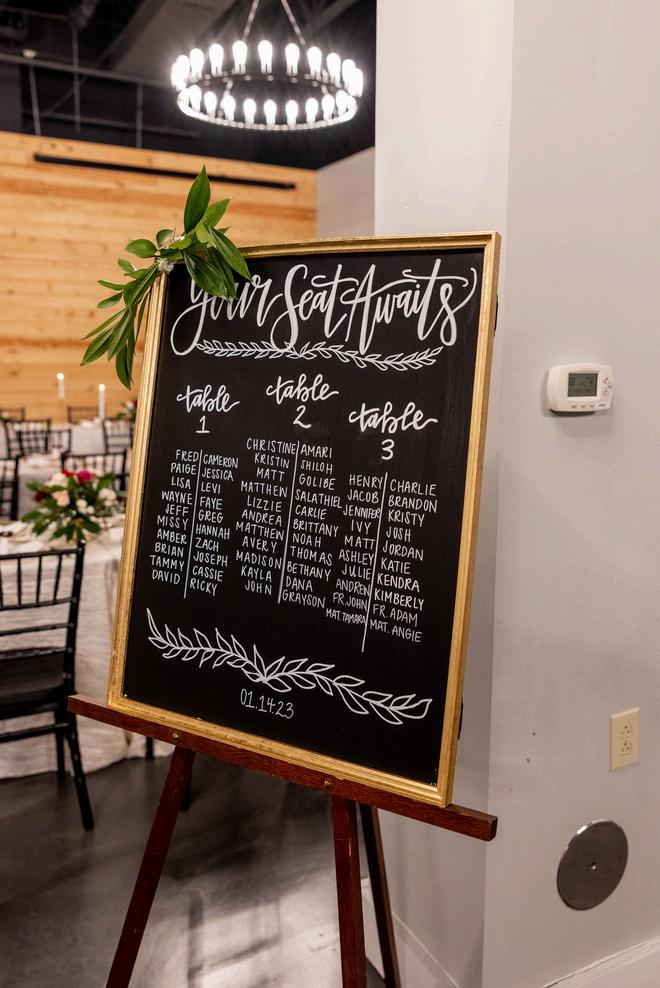 your Seat Awaits
table
1
FRED
PAIGE
LISA
WAYNE
JEFF
MISSY
AMBER
BRIAN
TAMMY
DAVID
CAMERON
JESSICA
LEVI
FAYE
GREG
HANNAH
ZACH
JOSEPH
CASSIE
RICKY
table
2
CHRISTINE
KRISTIN
MATT
MATTHEN
LIZZIE
ANDREA
MATTHEW
AVERY
MADISON
KAYLA
JOHN
AMARI
SHILOH
GOLIBE
SALATHIEL
CARLIE
BRITTANY
NOAH
THOMAS
BETHANY
DANA
GRAYSON
table
3
HENRY
JACOB
JENNIFER
IVY
MATT
ASHLEY
JULIE
ANDREN
FR. JOHN
MAT. TAMARA
CHARLIE
BRANDON
KRISTY
JOSH
JORDAN
KATIE
KENDRA
KIMBERLY
FR. ADAM
MAT. ANGIE
01.14.23